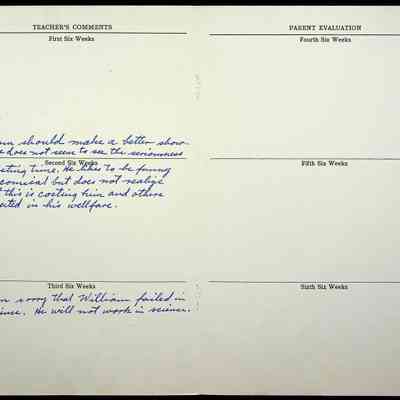 TEACHER'S COMMENTS
First Six Weeks
should make a better show-
does not seem to see the seriousness
Second Six Weeks
time. He likes to be funny
comical but does not realize
this is costing him and others
in his wellfare.
Third Six Weeks
sorry that William failed in
He will not work in science.
PARENT EVALUATION
Fourth Six Weeks
Fifth Six Weeks
Sixth Six Weeks